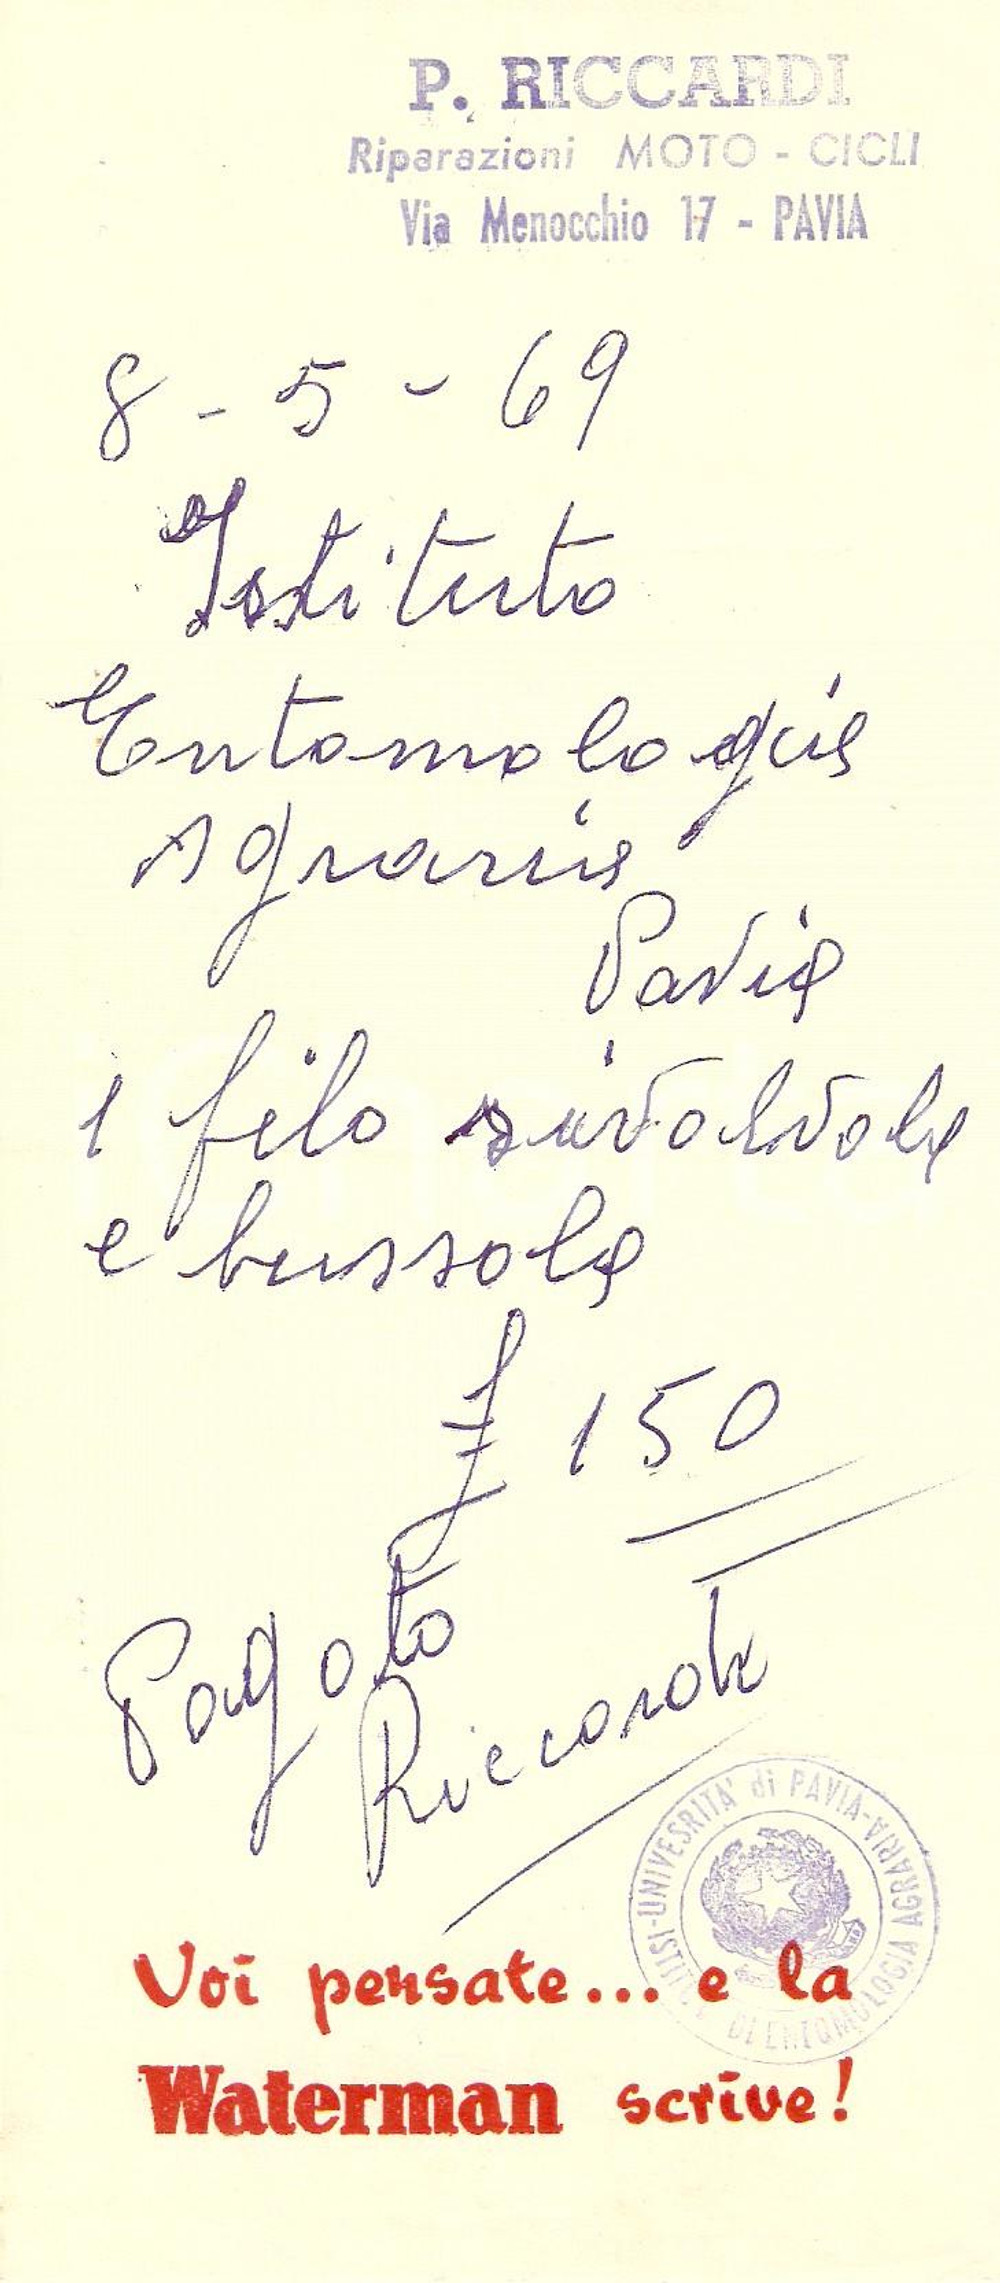 P. RICCARDI
Riparazioni MOTO - CICLI
Via Menocchio 17 - PAVIA
8 - 5 - 69
Istituto
Entomologia
Agraria
Pavia
1 filo
e bussola
£ 150
Pagato
Riccardi
UNIVESRITA' di PAVIA-
DI ENTOMOLOGIA AGRARIA
Voi pensate... e la
Waterman scrive!